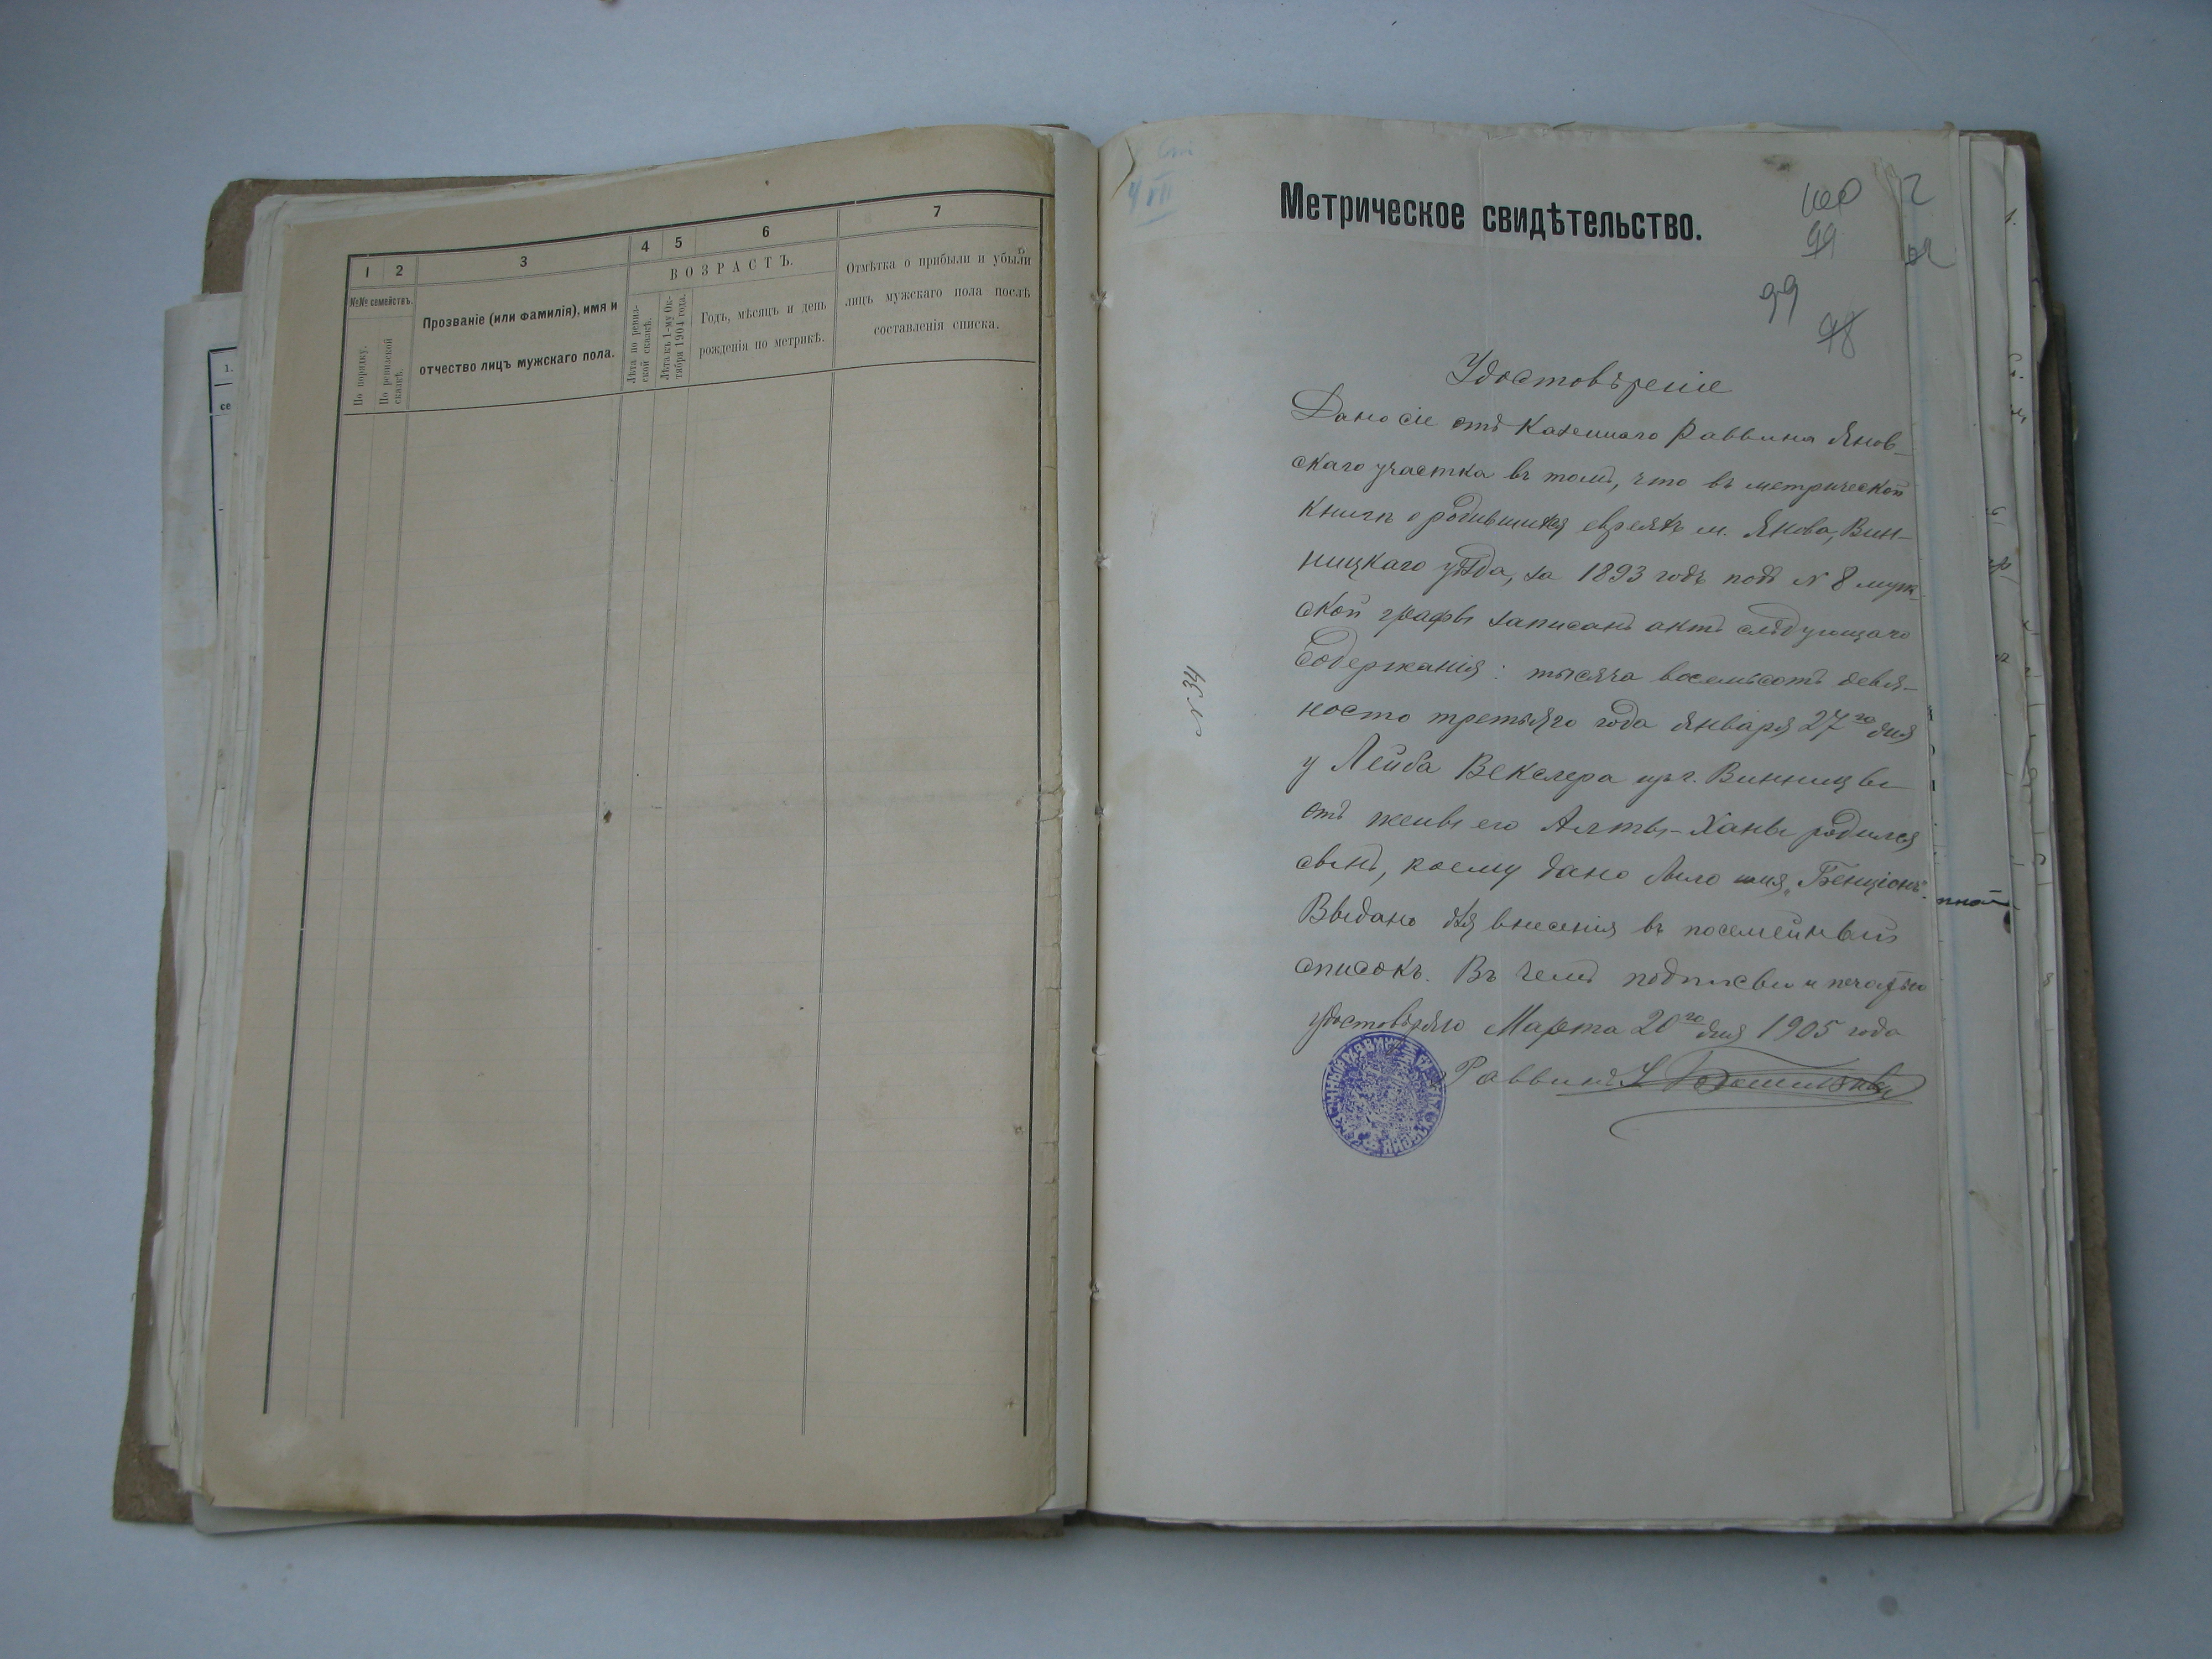 1
2
3
4
5
6
7
№№ семействъ.
По порядку.
По ревизской сказкѣ.
Прозваніе (или фамилія), имя и
отчество лицъ мужскаго пола.
ВОЗРАСТЪ.
Лѣта по ревиз-
ской сказкѣ.
Лѣта къ 1-му Ок-
тября 1904 года.
Годъ, мѣсяцъ и день
рожденія по метрикѣ.
Отмѣтка о прибыли и убыли
лицъ мужскаго пола послѣ
составленія списка.
Метрическое свидѣтельство.
100
99
99
98
Удостовѣреніе
Дано сіе отъ Казеннаго Раввина Янов-
скаго участка въ томъ, что въ метрической
книгѣ о родившихся евреяхъ м. Янова, Вин-
ницкаго уѣзда, за 1893 годъ подъ № 8 муж-
ской графы записанъ актъ слѣдующаго
содержанія: тысяча восемьсотъ девя-
носто третьяго года января 27го дня
у Лейба Векслера изъ г. Винницы
отъ жены его Алты-Ханы родился
сынъ, коему дано было имя „Бенціонъ".
Выдано для внесенія въ посемейный
списокъ. Въ чемъ подписью и печатью
удостовѣряю Марта 20го дня 1905 года
Раввинъ
№ 34